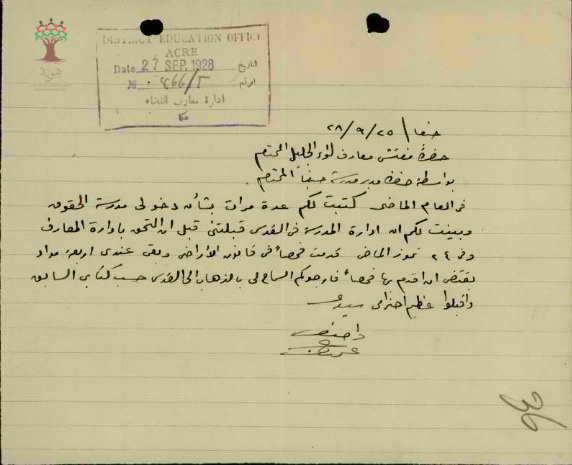 DISTRICT EDUCATION OFFICE
ACRE
Date 27 SEP. 1928 التاريخ
No. 466/2 الرقم
ادارة معارف القضاء
عكا
حيفا / ٢٥ / ٩ / ٢٨
حضرة مفتش معارف لواء الجليل المحترم
بواسطة حضرة مدير مدرسة حيفا المحترم
في العام الماضي كتبت لكم عدة مرات بشأن دخولي مدرسة الحقوق
وبينت لكم ان ادارة المدرسة في القدس قبلتني قبل ان التحق بادارة المعارف
وفي ٢٤ تموز الماضي قدمت فحصاً في قانون الأراضي وبقي عندي اربعة مواد
يقتضي ان اقدم بها فحصاً فارجوكم السماح لي بالذهاب الى القدس حسب كتابي السابق
واقبلوا عظيم احترامي سيدي